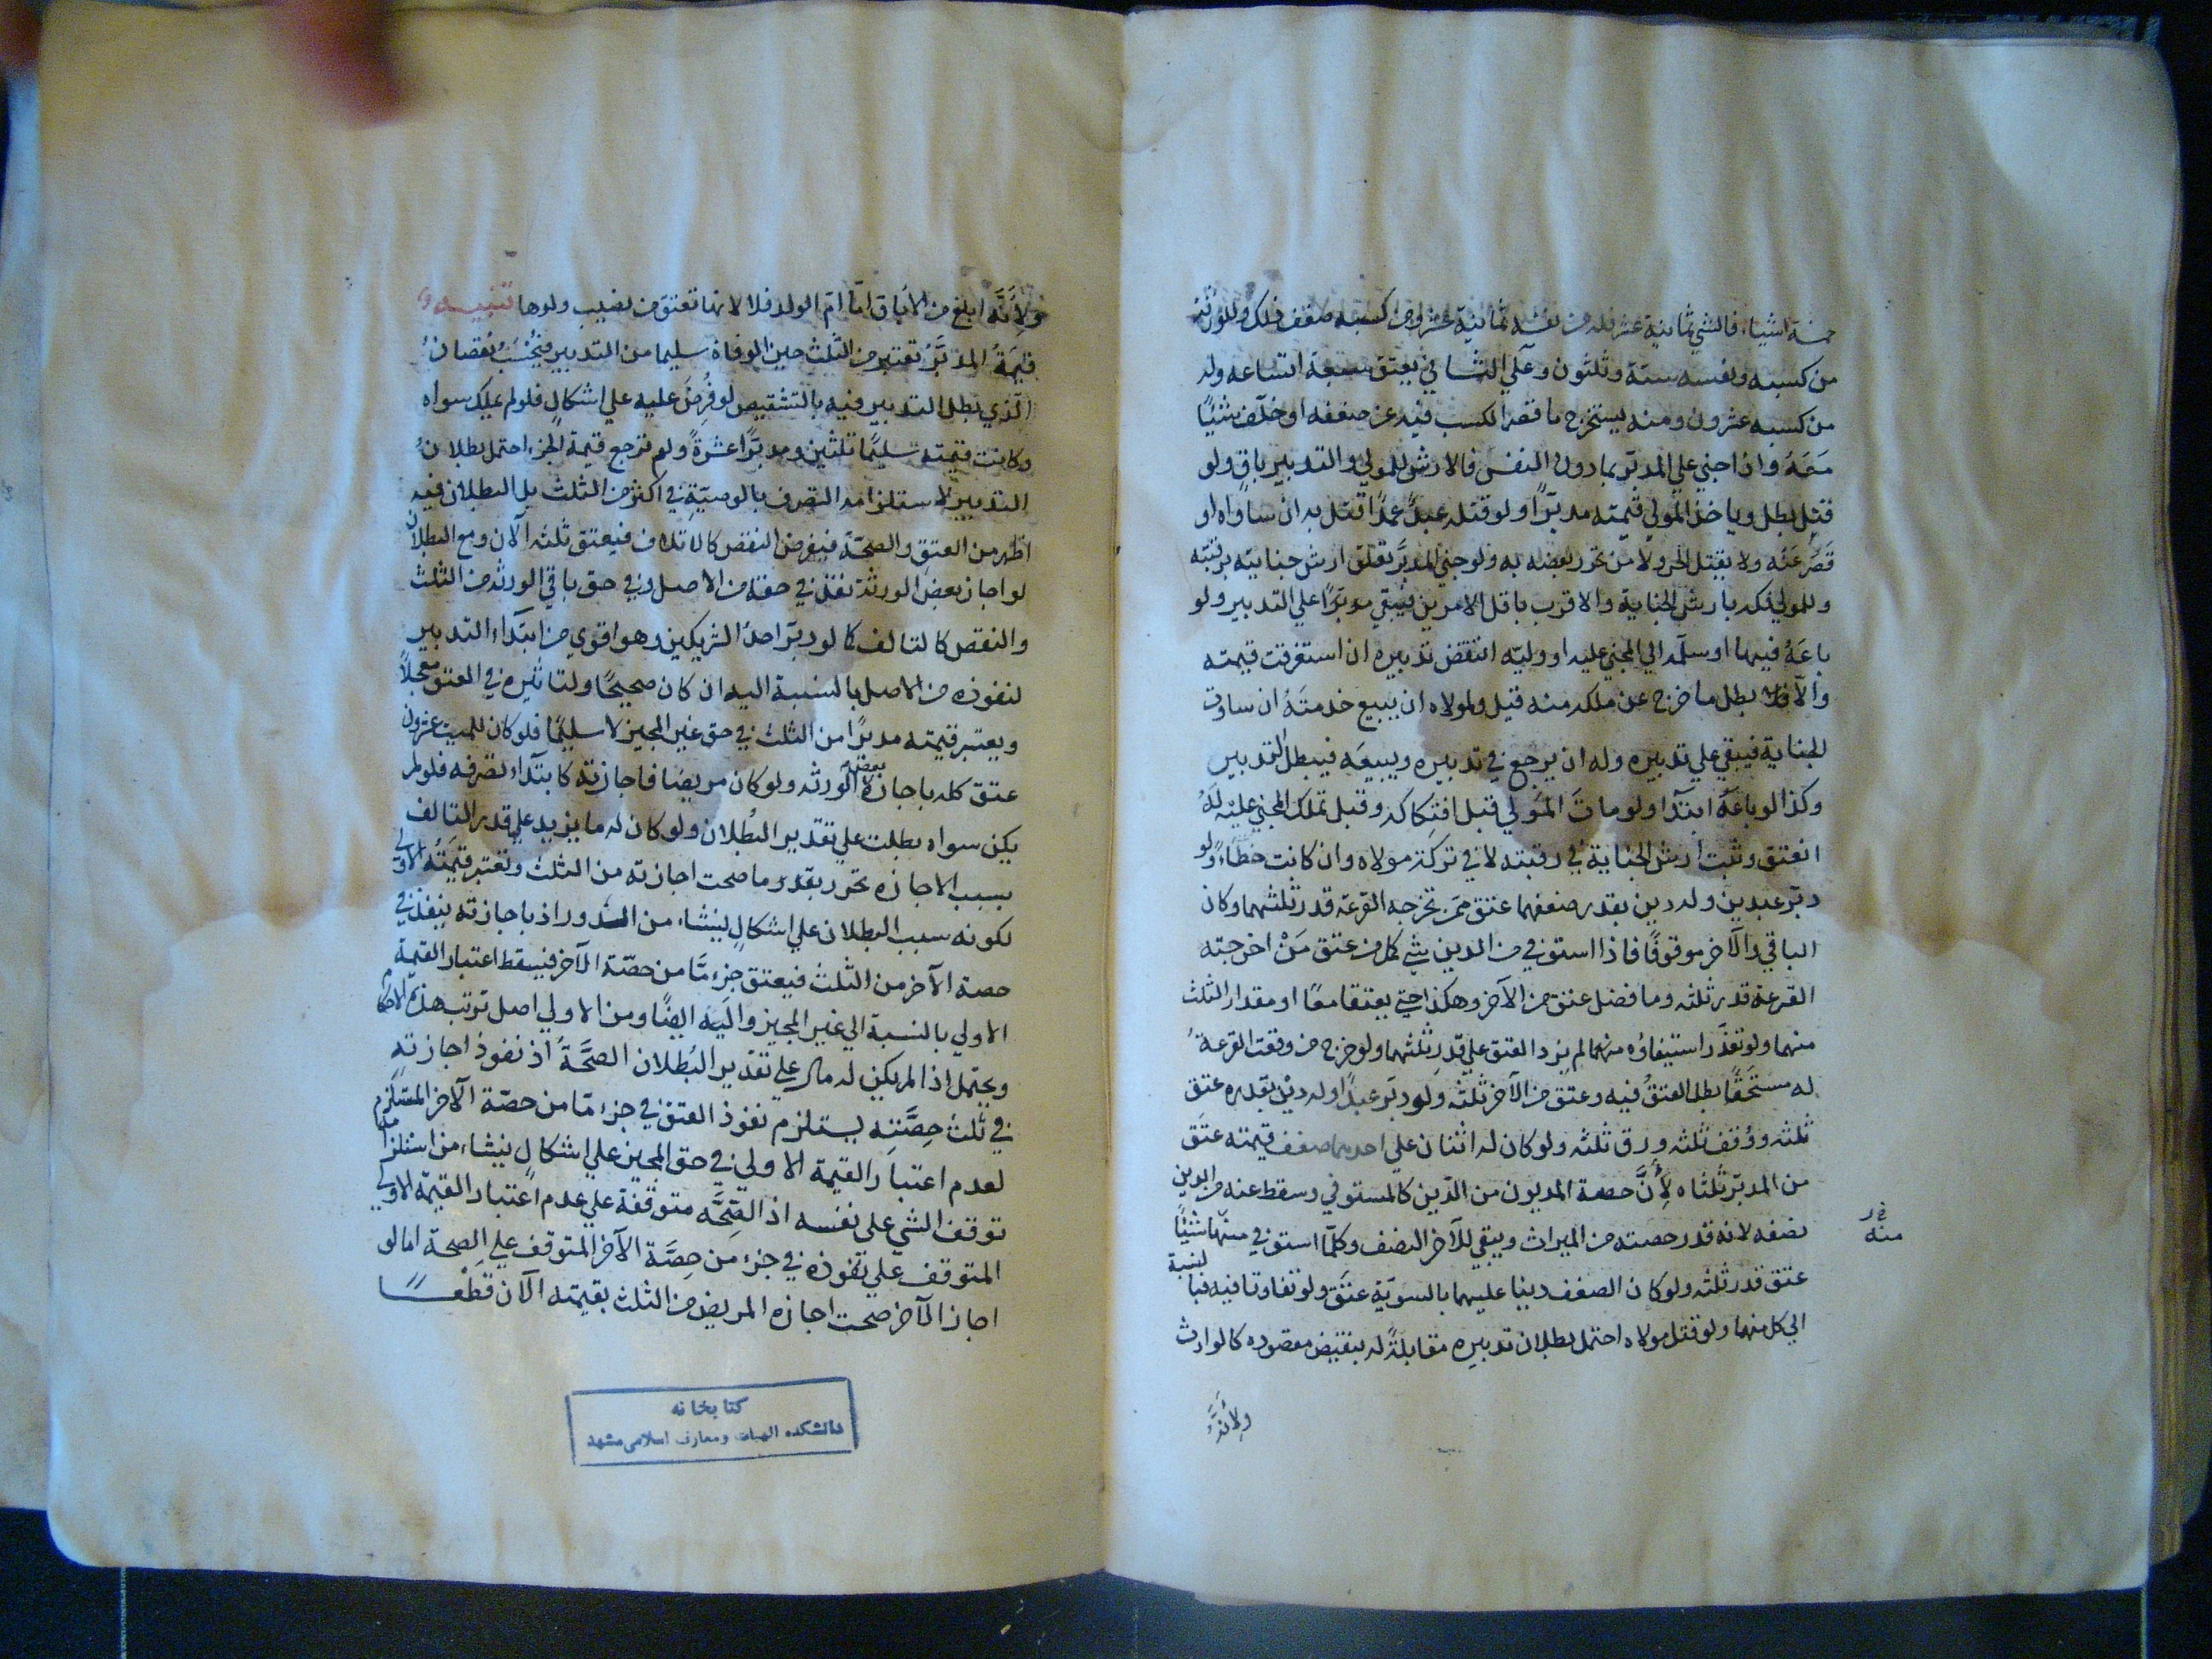 خمسة اشياء فالشي ثمانية عشر فله من نفسه ثمانية عشر ومن كسبه ضعف ذلك وللورثة
من كسبه ونفسه ستة وثلثون وعلي الثاني يعتق سبعة اتساعه وله
من كسبه عشرون ومنه يستخرج ما قصر الكسب فيه عن ضعفه او خلف شيئًا
معه وان اجني علي المدبر بما دون النفس فالارش للمولي والتدبير باق ولو
قتل بطل وياخذ المولي قيمته مدبّرًا ولو قتله عبدٌ عمدًا قتل به ان ساواه او
قصر عنه ولا يقتل الحر ولا من تحرر بعضه به ولو جني المدبَّر تعلق ارش جنايته برقبته
وللمولي فكه بارش الجناية والاقرب باقل الامرين فيبقي مدبّرًا علي التدبير ولو
باعَهُ فيها او سلّمه الي المجني عليه او وليّه انتقض تدبيره ان استغرقت قيمته
والّا فلا بطل ما خرج عن ملكه منه قيل ولمولاه ان يبيع خدمتَهُ ان ساوت
الجناية فيبقي علي تدبيره وله ان يرجع في تدبيره ويبيعَه فيبطل التدبير
وكذا لو باعَهُ ابتدا ولو ماتَ المَولي قبل افتكاكه وقبل تملك المجني عليه لَهُ
انعتق وثبت ارش الجناية في رقبته لا في تركة مولاه وان كانت خطاءً ولو
دبّر عبدين وله دين بقدر ضعفهما عتق ممن تخرجه القرعة قدر ثلثهما وكان
الباقي والآخر موقوفًا فاذا استوفي من الدين شي كمل من عتق مَنْ اخرجته
القرعة قدر ثلثه وما فضل عتق من الآخر وهكذا حتي يعتقا معًا او مقدار الثلث
منهما ولو تعذّر استيفاؤه منهما لم يزد العتق علي قدر ثلثهما ولو خرج من وقعت القرعةُ
له مستحَقًّا بطل العتقُ فيه وعتق من الآخر ثلثه ولو دبّر عبدًا وله دينٌ بقدره عتق
ثلثه ووُقف ثلثه ورق ثلثه ولو كان له اثنان علي احدهما ضعف قيمته عتق
من المدبّر ثلثاه لأِنَّ حصة المديون من الدّين كالمستوفي وسقط عنه من الدين
نصفه لانه قدر حصته من الميراث ويبقي للآخر النصف وكلّما استوفي منهما شيئًا
عتق قدر ثلثه ولو كان الضعف دينا عليهما بالسويّة عتق ولو تفاوتا فيه فبالنسبة
الي كل منهما ولو قتل مولاه احتمل بطلان تدبيره مقابلةً له بنقيض مقصوده كالوارث
منه
ولأنَّهُ
ولأنَّه ابلغ من الاباق امّا امّ الولد فلا لانها تعتق من نصيب ولدها تنبيه
قيمَةُ المدبَّر تعتبر من الثلث حين الوفاة سليما من التدبير فيُحْسَبُ نُقصانُ
الّذي بطل التدبير فيه بالتشقيص لو فُرِضَ عليه علي اشكالٍ فلو لم يملك سواه
وكانت قيمته سليمًا ثلثين ومدبّرًا عشرةً ولم ترجع قيمة الجزء احتمل بطلانُ
التدبير لاستلزامه التصرف بالوصيّةِ في اكثر من الثلث بل البطلان فيه
اظهر من العتق والصحّة فيفرض النقص كالاتلاف فيعتق ثلثه الآن ومع البطلان
لو اجاز بعض الورثة نفذ في حقه من الاصل وفي حق باقي الورثه من الثلث
والنقص كالتالف كما لو دبّر احدُ الشريكين وهو اقوي من ابتداء التدبير
لنفوذه من الاصل بالنسبة اليه ان كان صحيحًا ولتاثيره في العتق معجلًا
ويعتبر قيمته مدبرًا من الثلث في حق غير المجيز لا سليمًا فلو كان للميت عشرون
عتق كله باجازة بعض الورثه ولو كان مريضا فاجازته كابتداء تصرفه فلو لم
يكن سواه بطلت علي تقدير البُطلان ولو كان له ما يزيد علي قدر التالف
بسبب الاجازه تحرر بقدر ما صحت اجازته من الثلث وتعتبر قيمَتُه الاولي
لكونه سبب البطلان علي اشكالٍ ينشاء من الدور اذ باجازته ينفذ في
حصة الآخر من الثلث فيعتق جزء مّا من حصّة الآخر فيسقط اعتبار القيمة
الاولي بالنسبة الي غير المجيز واليَه ايضًا ومن الاولي اصل ترتب هذه الاحكام
ويحتمل اذا لم يكن له مال علي تقدير البُطلان الصحَّةَ اذ نفوذ اجازته
في ثلث حِصَّتِه يستلزم نفوذ العتق في جزء مّا من حصّة الآخر المستلزم
لعدم اعتبار القيمة الاولي في حق المجيز علي اشكالٍ ينشاء من استلزامها
توقف الشي علي نفسه اذ الصِّحَّه متوقفة علي عدم اعتبار القيمة الاولي
المتوقف علي نفوذه في جزء من حِصَّة الآخر المتوقف علي الصحة اما لو
اجاز الآخر صحت اجازه المريض من الثلث بقيمته الآن قطعـــا
كتابخانه
دانشكده الهيات ومعارف اسلامى مشهد